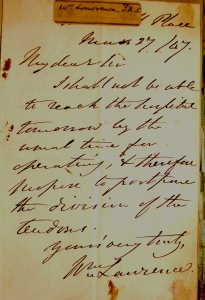 Wm Lawrence, F.R.S.
Place
27/47
My dear Sir
I shall not be able
to reach the hospital
tomorrow by the
usual time for
operating, & therefore
propose to postpone
the division of the
tendons.
Yours very truly,
Wm Lawrence.